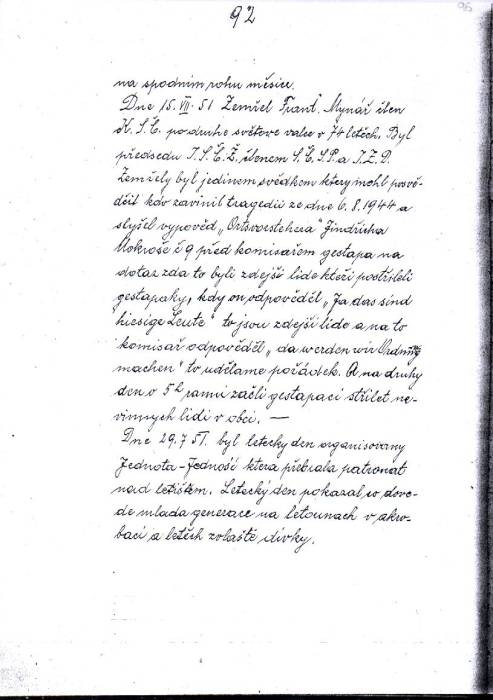 92
96
na spodnim rohu měsíce.
Dne 15.VII.51 Zemřel Frant. Mynář člen
K.S.Č. po druhé světové valce v 74 letech. Byl
předsedu J.S.Č.Ž. členem S.Č.S.P. a J.Z.D.
Zemřely byl jedinem svědkem ktery mohl posvě-
dčit kdo zavinil tragedii ze dne 6.8.1944 a
slyšel vypověd „Ortsvorstehera" Jindřicha
Mokroše č 9 před komisařem gestapa na
dotaz zda to byli zdejší lide kteři postřileli
gestapaky, kdy on odpověděl „Ja das sind
hiesige Leute" to jsou zdejši lide a na to
komisař odpověděl „da werden wir Ordnung
machen" to uděláme pořádek. A na druhy
den o 5h ranni začli gestapaci střilet ne-
vinnych lidi v obci. —
Dne 29.7 51. byl letecky den organisovany
Jednota-Jedność ktera přebrala patronat
nad letištěm. Letecký den pokazal co dove-
de mlada generace na letounach v akro-
baci a letěch zvláště dívky.